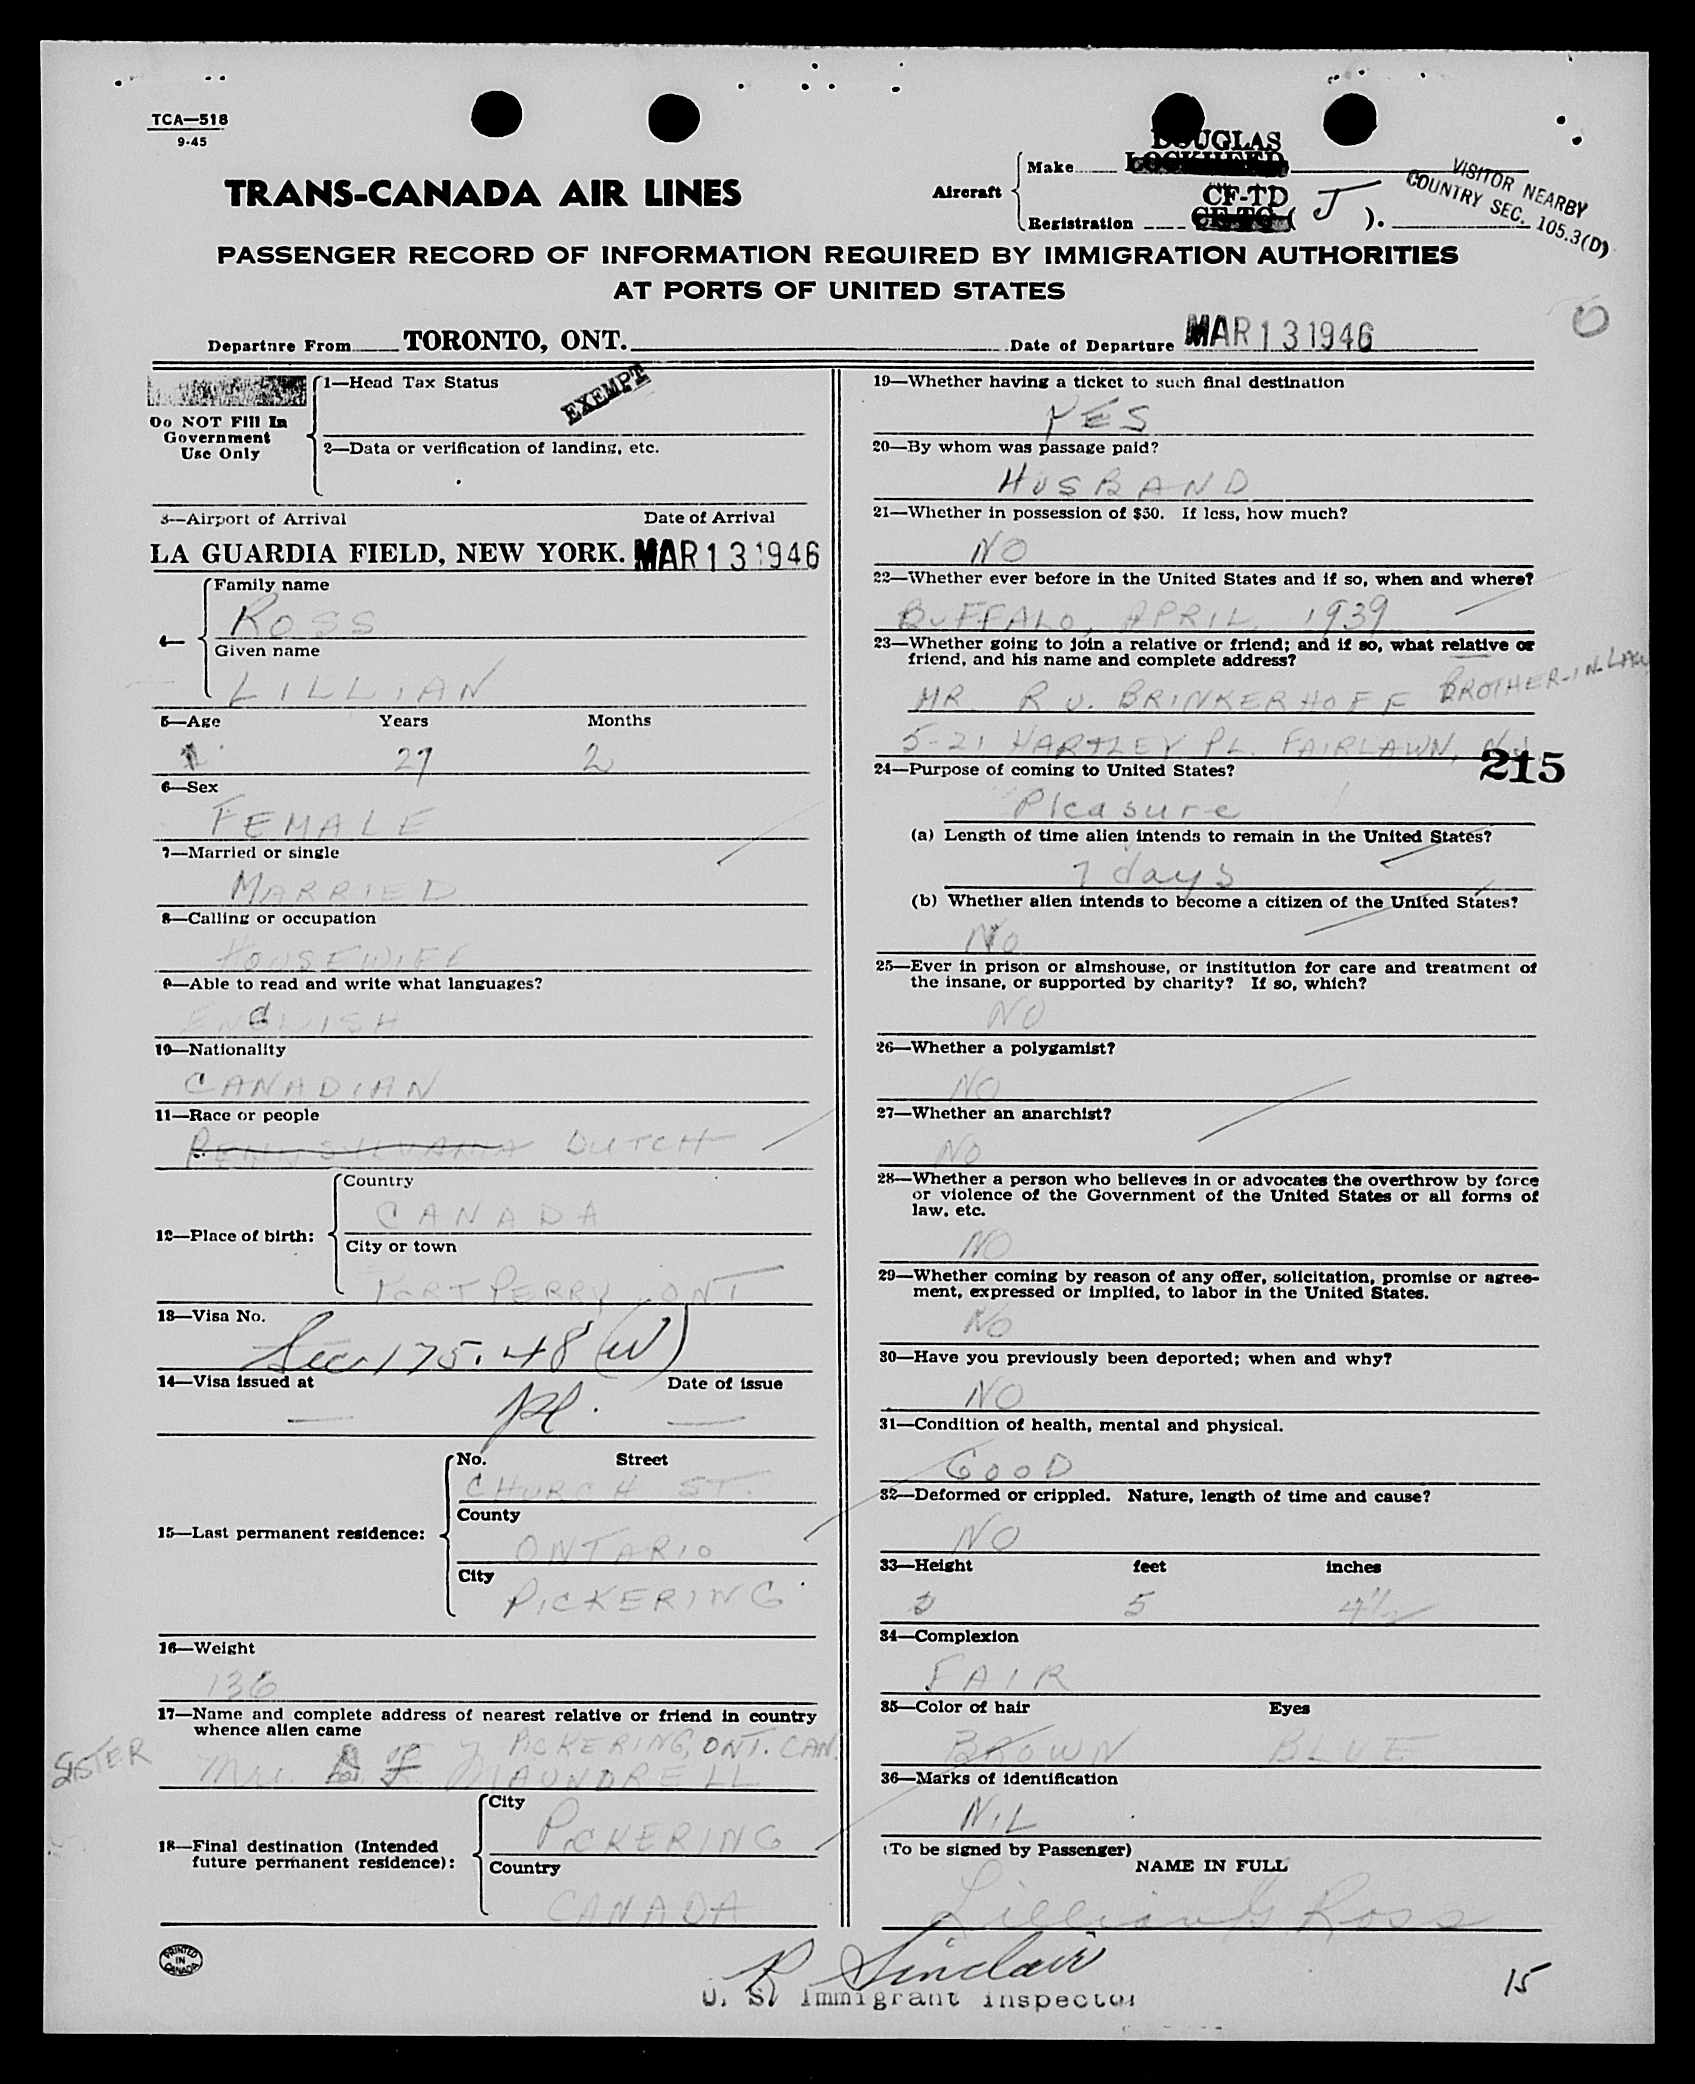 TCA—518
9-45
TRANS-CANADA AIR LINES
Aircraft
Make DOUGLAS
LOCKHEED
Registration CF-TD
CF-TC ( J ).
VISITOR NEARBY
COUNTRY SEC. 105.3(D)
PASSENGER RECORD OF INFORMATION REQUIRED BY IMMIGRATION AUTHORITIES
AT PORTS OF UNITED STATES
Departure From TORONTO, ONT. Date of Departure MAR 13 1946
Do NOT Fill In
Government
Use Only
1—Head Tax Status EXEMPT
2—Data or verification of landing, etc.
3—Airport of Arrival Date of Arrival
LA GUARDIA FIELD, NEW YORK. MAR 13 1946
4—
Family name
ROSS
Given name
LILLIAN
5—Age Years Months
27 2
6—Sex
FEMALE
7—Married or single
MARRIED
8—Calling or occupation
HOUSEWIFE
9—Able to read and write what languages?
ENGLISH
10—Nationality
CANADIAN
11—Race or people
PENNSILVANIA DUTCH
12—Place of birth:
Country
CANADA
City or town
PORT PERRY, ONT
13—Visa No.
Sec 175.48 (W)
14—Visa issued at Date of issue
— pl. —
15—Last permanent residence:
No. Street
CHURCH ST.
County
ONTARIO
City
PICKERING
16—Weight
136
17—Name and complete address of nearest relative or friend in country
whence alien came
PICKERING, ONT. CAN.
SISTER Mrs. MAUNDRELL
18—Final destination (Intended
future permanent residence):
City
PICKERING
Country
CANADA
PRINTED
IN
CANADA
19—Whether having a ticket to such final destination
YES
20—By whom was passage paid?
HUSBAND
21—Whether in possession of $50. If less, how much?
NO
22—Whether ever before in the United States and if so, when and where?
BUFFALO, APRIL, 1939
23—Whether going to join a relative or friend; and if so, what relative or
friend, and his name and complete address?
MR. R U. BRINKERHOFF BROTHER-IN-LAW
5-21 HARTLEY PL. FAIRLAWN, N.J.
215
24—Purpose of coming to United States?
Pleasure
(a) Length of time alien intends to remain in the United States?
7 days
(b) Whether alien intends to become a citizen of the United States?
No
25—Ever in prison or almshouse, or institution for care and treatment of
the insane, or supported by charity? If so, which?
NO
26—Whether a polygamist?
NO
27—Whether an anarchist?
NO
28—Whether a person who believes in or advocates the overthrow by force
or violence of the Government of the United States or all forms of
law, etc.
NO
29—Whether coming by reason of any offer, solicitation, promise or agree-
ment, expressed or implied, to labor in the United States.
No
30—Have you previously been deported; when and why?
NO
31—Condition of health, mental and physical.
GOOD
32—Deformed or crippled. Nature, length of time and cause?
NO
33—Height feet inches
5 4½
34—Complexion
FAIR
35—Color of hair Eyes
BROWN BLUE
36—Marks of identification
NIL
(To be signed by Passenger)
NAME IN FULL
Lillian G Ross
R Sinclair
U. S. Immigrant Inspector
15